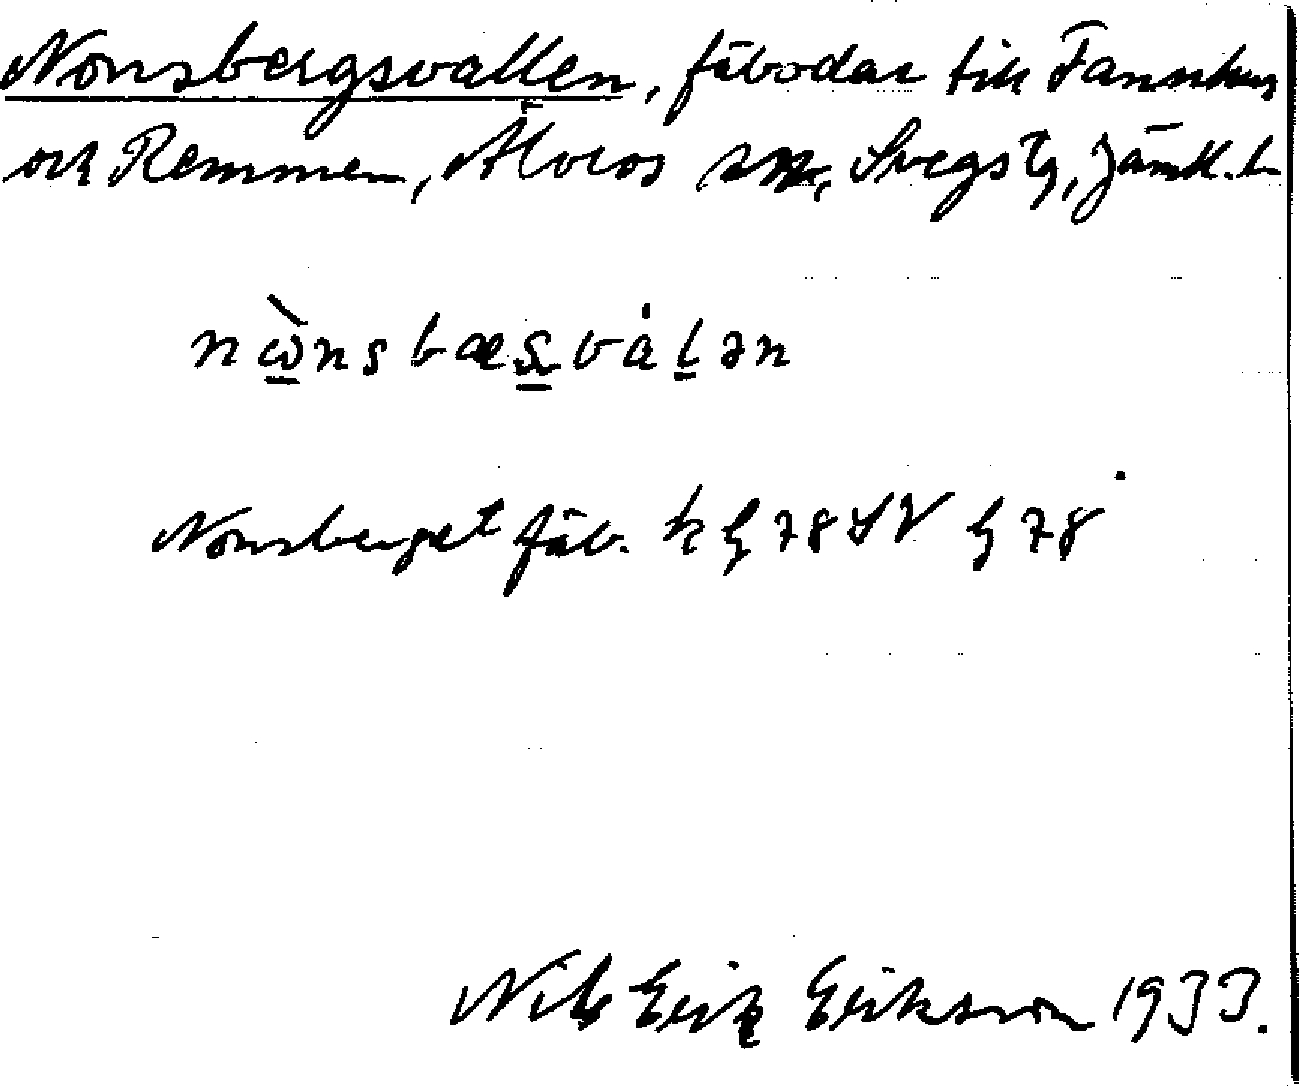 Nonsbergsvallen, fäbodar till Fannbyn
och Remmen, Älvros sn, Svegs tg, Jämtl. l.
nὼnsbæsvålən
Nonsberget fäb. k g 78 SV g 78
Nils Erik Eriksson 1933.